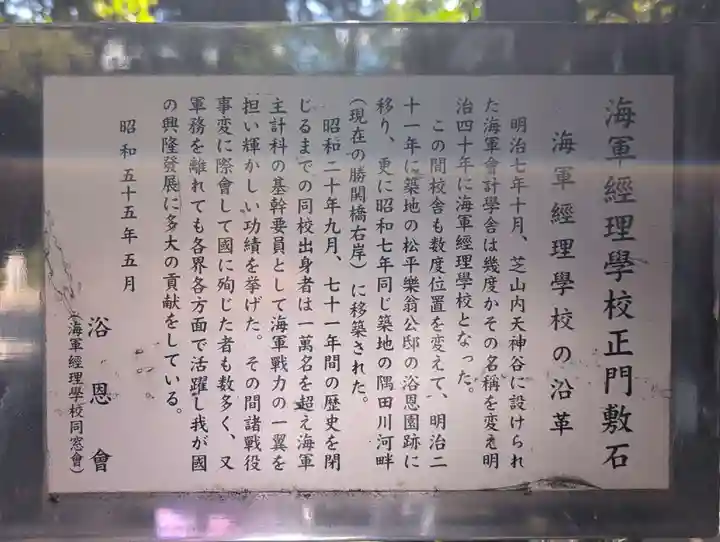 海軍經理學校正門敷石
海軍經理學校の沿革
明治七年十月、芝山内天神谷に設けられ
た海軍會計學舎は幾度かその名稱を変え明
治四十年に海軍經理學校となった。
この間校舎も数度位置を変えて、明治二
十一年に築地の松平樂翁公邸の浴恩園跡に
移り、更に昭和七年同じ築地の隅田川河畔
(現在の勝鬨橋右岸)に移築された。
昭和二十年九月、七十一年間の歴史を閉
じるまでの同校出身者は一萬名を超え海軍
主計科の基幹要員として海軍戦力の一翼を
担い輝かしい功績を挙げた。その間諸戦役
事変に際會して國に殉じた者も数多く、又
軍務を離れても各界各方面で活躍し我が國
の興隆發展に多大の貢献をしている。
昭和五十五年五月
浴恩會
(海軍經理學校同窓會)